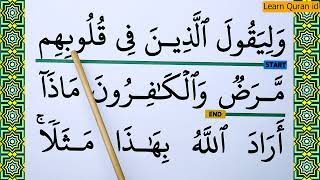 Learn Quran id
وَلِيَقُولَ ٱلَّذِينَ فِى قُلُوبِهِم
START
مَّرَضٌ وَٱلْكَـٰفِرُونَ مَاذَآ
END
أَرَادَ ٱللَّهُ بِهَـٰذَا مَثَلًا ۚ